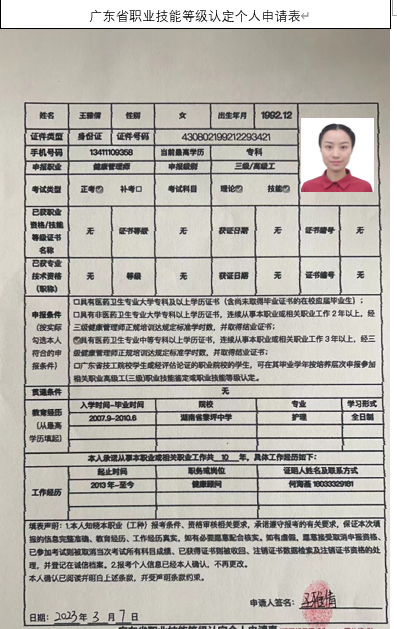 广东省职业技能等级认定个人申请表
姓名 王雅倩 性别 女 出生年月 1992.12
证件类型 身份证 证件号码 430802199212293421
手机号码 13411109358 当前最高学历 专科
申报职业 健康管理师 申报级别 三级/高级工
考试类型 正考☑ 补考□ 考试科目 理论☑ 技能☑
已获职业资格/技能等级证书名称 无 证书等级 无 获证日期 无 证书编号 无
已获专业技术资格(职称) 无 等级 无 获证日期 无 证书编号 无
申报条件(按实际勾选本人符合的申报条件)
□具有医药卫生专业大学专科及以上学历证书（含尚未取得毕业证书的在校应届毕业生）；
□具有非医药卫生专业大学专科及以上学历证书，连续从事本职业或相关职业工作2年以上，经
三级健康管理师正规培训达规定标准学时数，并取得结业证书；
☑具有医药卫生专业中等专科以上学历证书，连续从事本职业或相关职业工作3年以上，经三
级健康管理师正规培训达规定标准学时数，并取得结业证书；
□广东省技工院校学生或经评估论证的职业院校的学生，可在其毕业学年按培养层次申报参加
相关职业高级工(三级)职业技能鉴定或职业技能等级认定。
贯通条件 无
教育经历(从最高学历填起)
入学时间-毕业时间 院校 专业 学习形式
2007.9-2010.6 湖南省黎坪中学 护理 全日制
本人承诺从事本职业或相关职业工作共 10 年，具体工作经历如下：
工作经历
起止时间 职务或岗位 证明人姓名及联系方式
2013年-至今 健康顾问 何海基 18033329181
填表声明：1.本人知晓本职业（工种）报考条件、资格审核相关要求，承诺遵守报考的有关要求，保证本次填
报的信息完整准确、教育经历、工作经历真实，如有必要愿意配合核实。如有虚假，愿意接受取消申报资格、
已参加考试则被取消当次考试所有科目成绩、已获得证书则被收回、注销证书数据检索及注销证书资格的处
理，并登记在诚信档案。2.报考个人信息已经本人确认，不再更改。
本人确认已阅读并明白上述条款，并受声明条款约束。
申请人签名：王雅倩
日期：2023年3月7日
广东省职业技能等级认定个人申请表